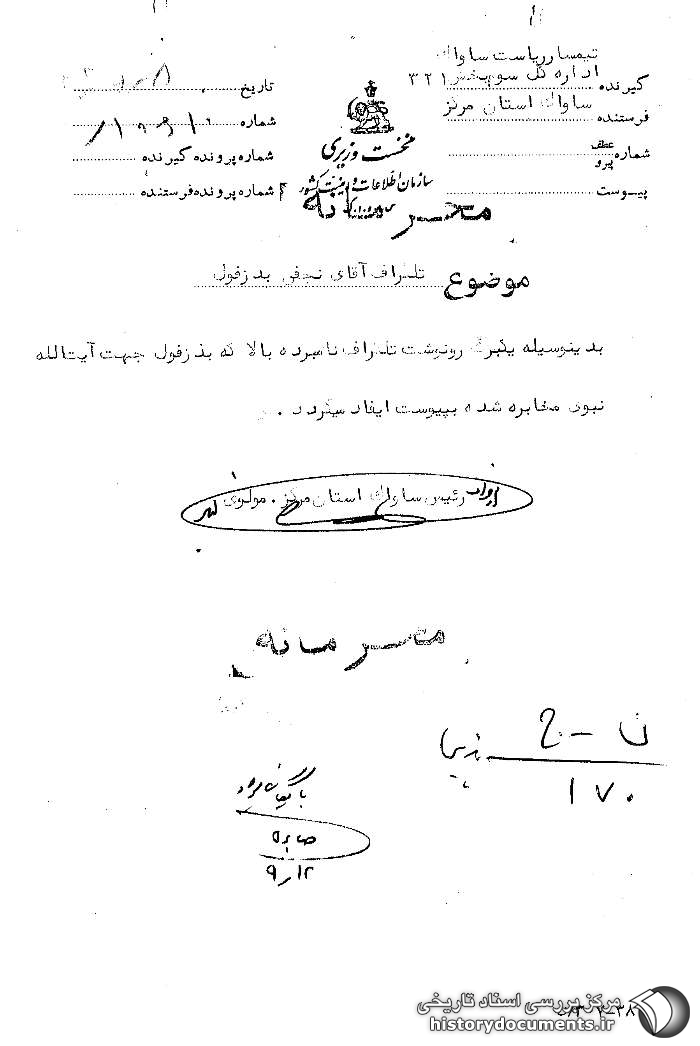 گیرنده تیمسار ریاست ساواك اداره کل سوم بخش ۳۲۱
فرستنده ساواك استان مرکز
شماره عطف پیرو
پیوست
نخست وزیری
سازمان اطلاعات و امنیت کشور
تاریخ
شماره
شماره پرونده گیرنده
شماره پرونده فرستنده
محرمانه
موضوع تلگراف آقای نجفی بدزفول
بدینوسیله یکبرگ رونوشت تلگراف نامبرده بالا که بدزفول جهت آیت‌الله
نبوی مخابره شده بپیوست ایفاد میگردد .
رئیس ساواك استان مرکز . مولوی
محرمانه
ن - ج
۱۷۰
بایگانی شود
۹/۱۲
مرکز بررسی اسناد تاریخی
historydocuments.ir